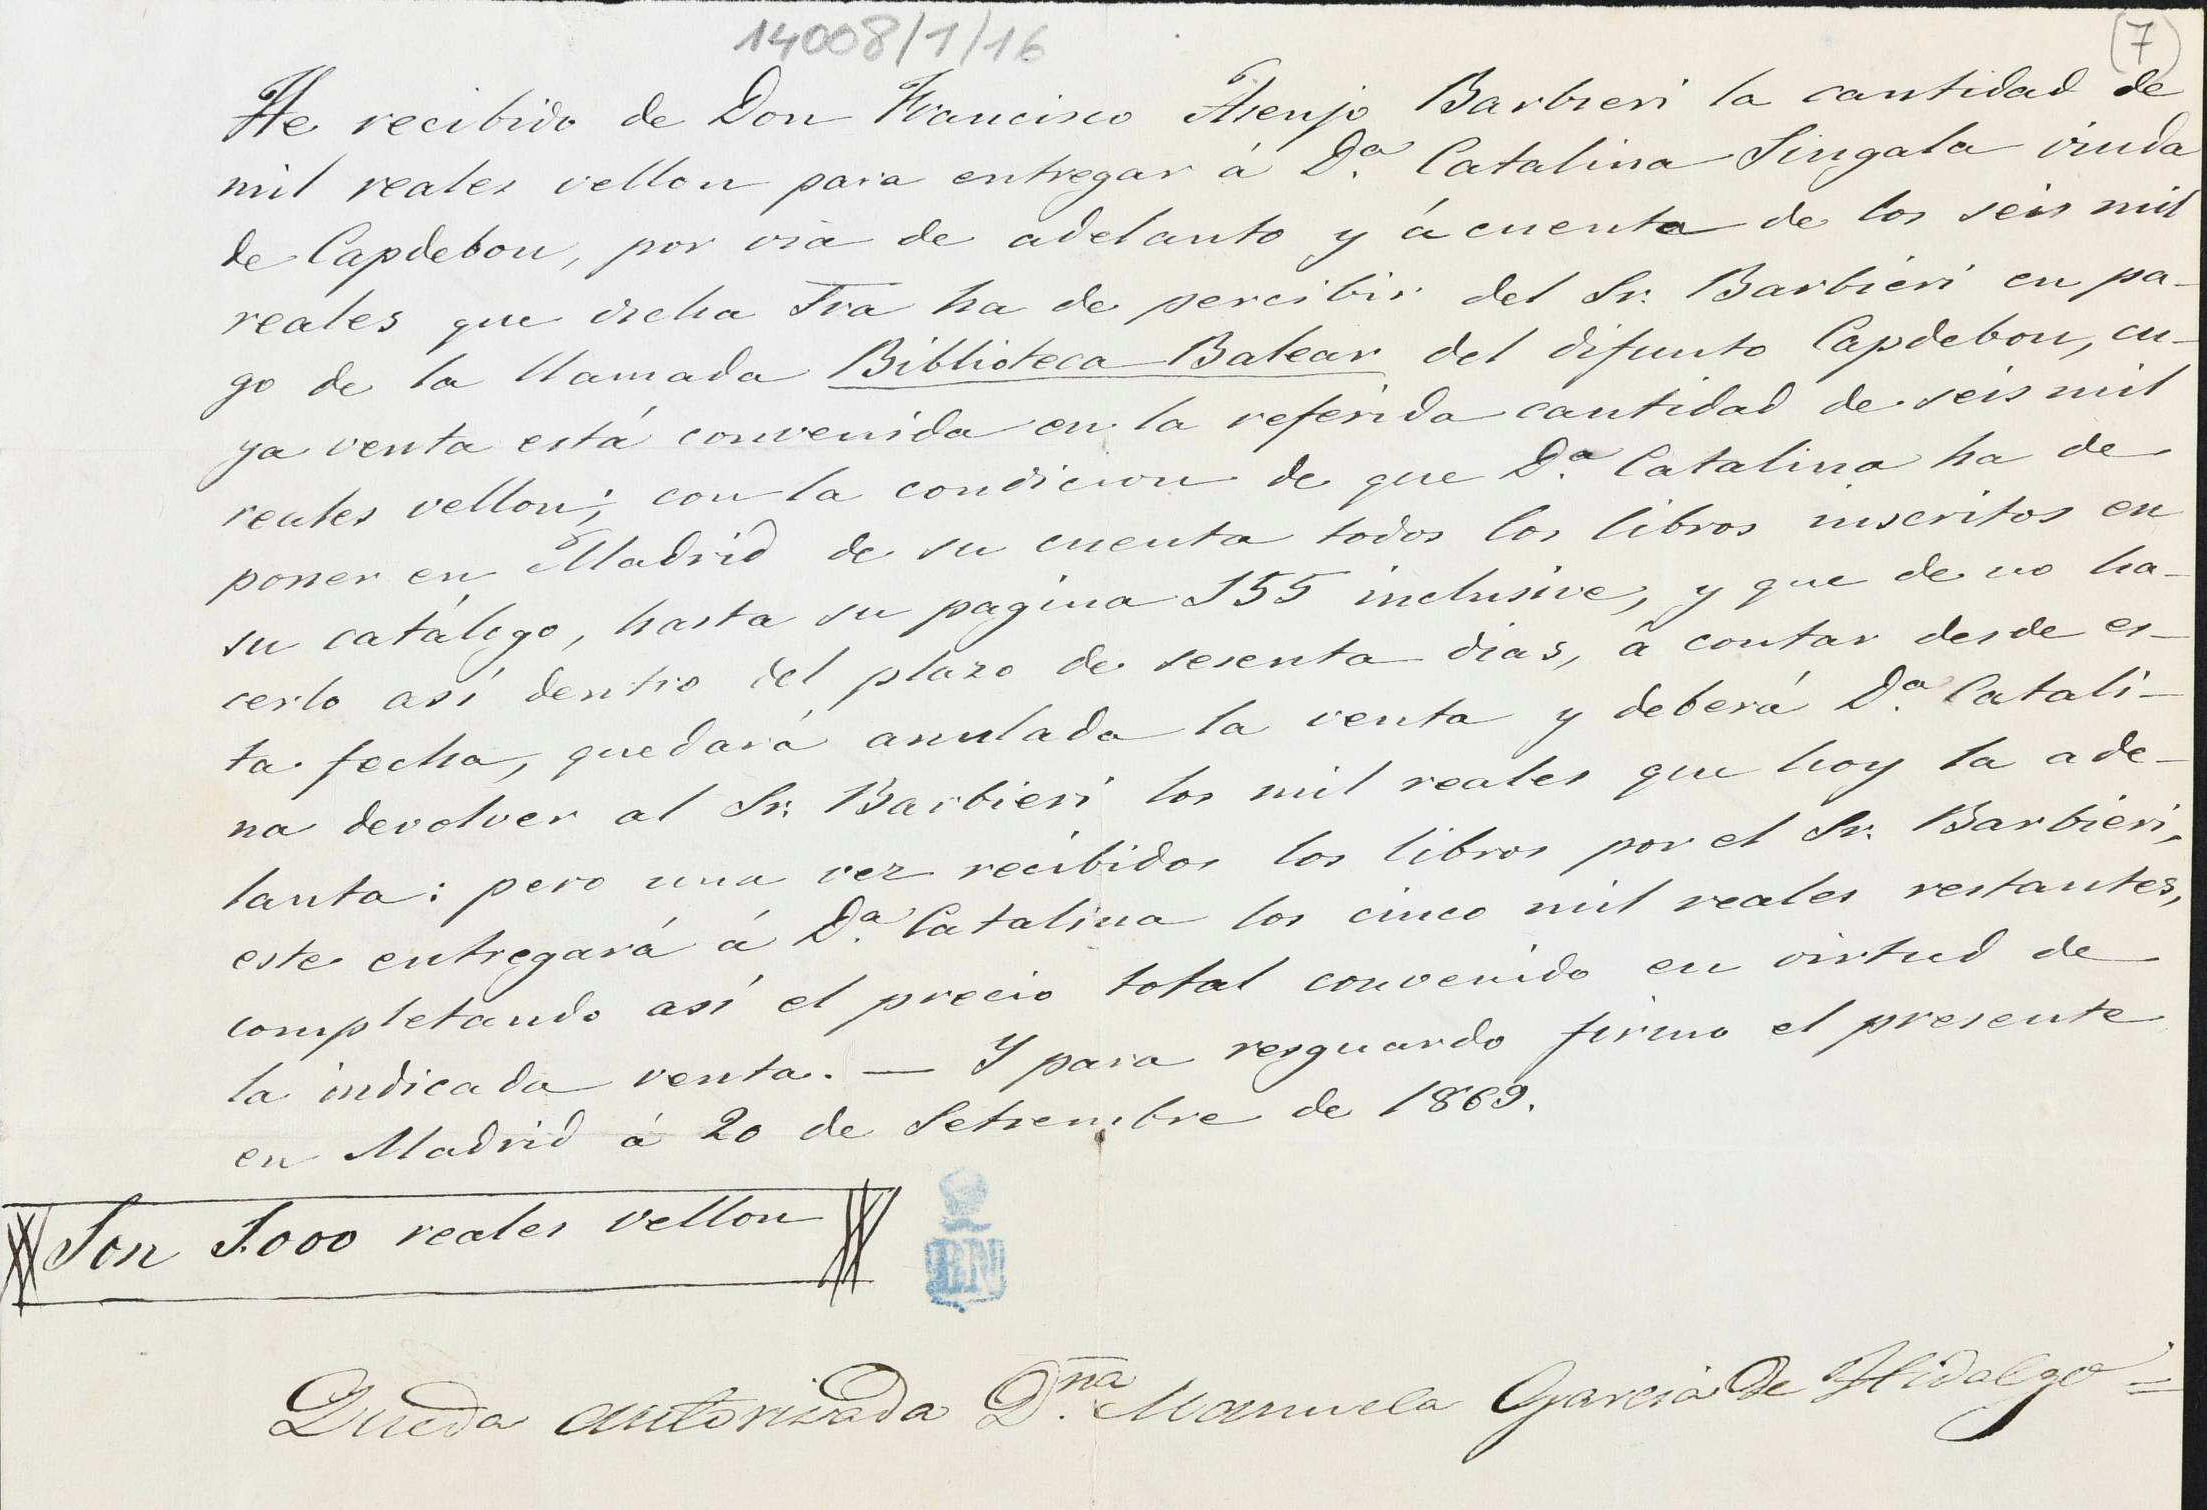 14008/1/16
(7)
He recibido de Don Francisco Asenjo Barbieri la cantidad de
mil reales vellon para entregar á D.ª Catalina Singala viuda
de Capdebou, por via de adelanto y á cuenta de los seis mil
reales que dicha Sra ha de percibir del Sr. Barbieri en pa-
go de la llamada Biblioteca Balear del difunto Capdebou, cu-
ya venta está convenida en la referida cantidad de seis mil
reales vellon; con la condicion de que D.ª Catalina ha de
poner en Madrid de su cuenta todos los libros inscritos en
su catálogo, hasta su pagina 155 inclusive, y que de no ha-
cerlo así dentro del plazo de sesenta dias, á contar desde es-
ta fecha, quedará anulada la venta y deberá D.ª Catali-
na devolver al Sr. Barbieri los mil reales que hoy la ade-
lanta: pero una vez recibidos los libros por el Sr. Barbieri,
este entregará á D.ª Catalina los cinco mil reales restantes,
completando así el precio total convenido en virtud de
la indicada venta. — Y para resguardo firmo el presente
en Madrid á 20 de Setiembre de 1869.
Son 1.000 reales vellon
BN
Queda autorizada D.ña Manuela Garcia de Hidalgo =